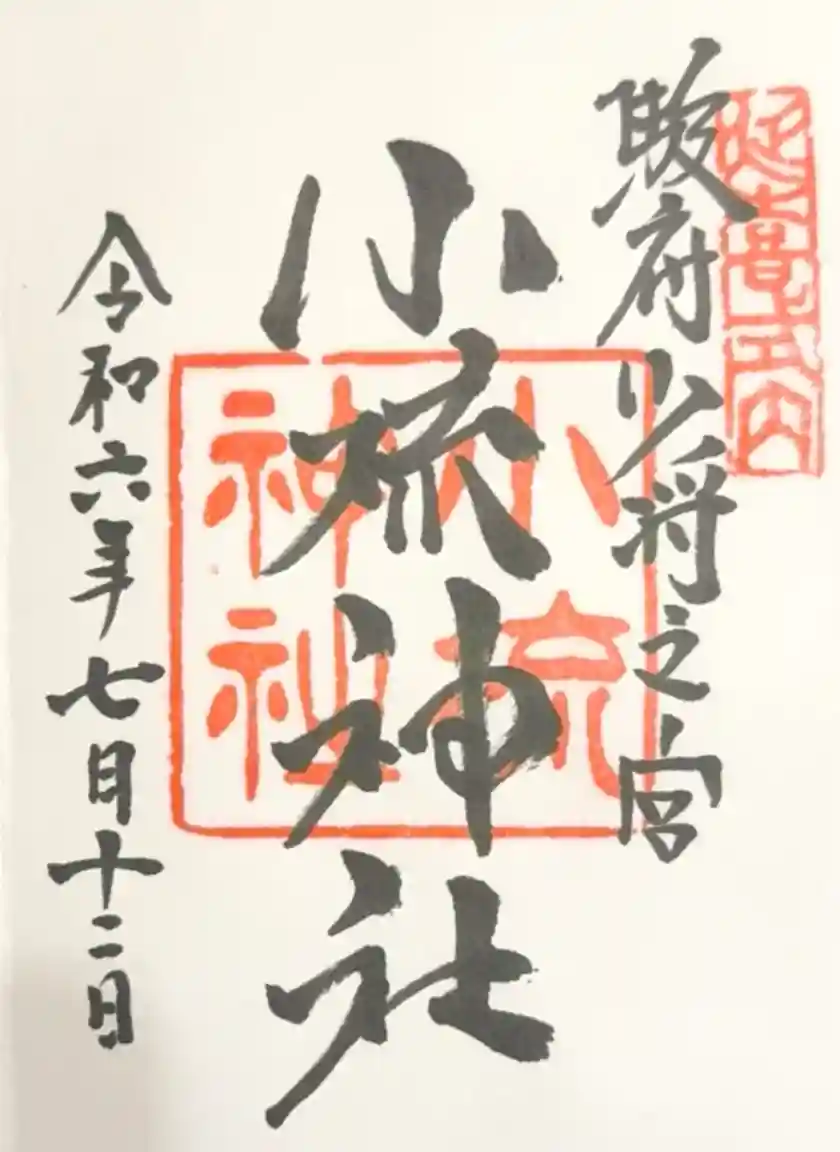 延喜式内
駿府少将之宮
小梳神社
小梳
神社
令和六年七月十二日